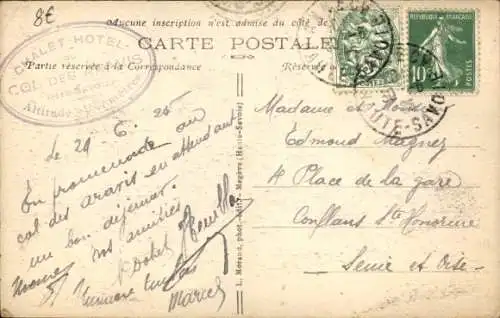 8€
Aucune inscription n'est admise du côté de
CARTE POSTALE
Partie réservée à la Correspondance
CHALET-HOTEL
COL DES ARAVIS
Altitude
REPUBLIQUE FRANÇAISE
10c
POSTES
HAUTE-SAVOIE
Le 29 6. 25
En promenade au
col des aravis en attendant
un bon déjeuner.
nos amitiés
Marcel
L. Morand, phot. édit., Megève (Haute-Savoie)
Madame et
Edmond Magnez
4 Place de la gare
Conflans Ste Honorine
Seine et Oise